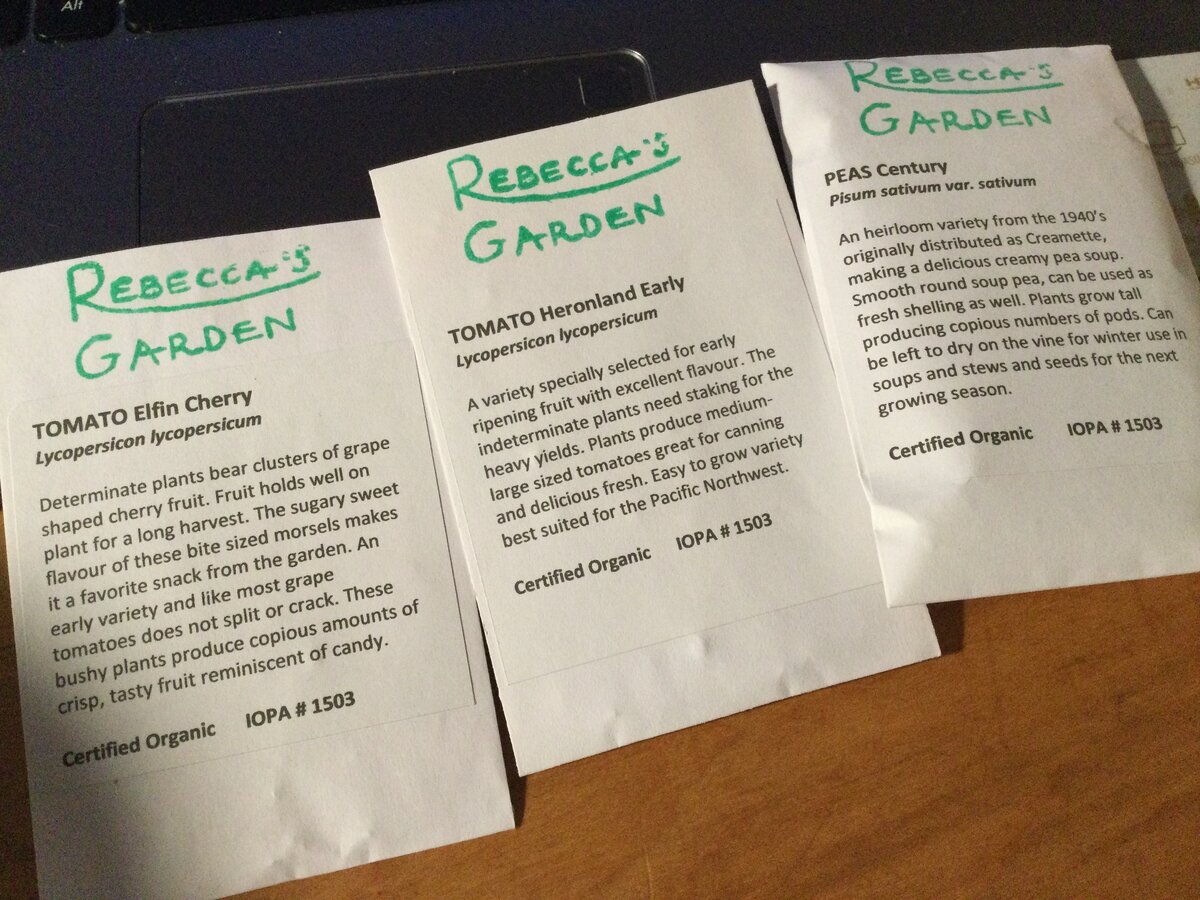 Alt
REBECCA'S
GARDEN
TOMATO Elfin Cherry
Lycopersicon lycopersicum
Determinate plants bear clusters of grape
shaped cherry fruit. Fruit holds well on
plant for a long harvest. The sugary sweet
flavour of these bite sized morsels makes
it a favorite snack from the garden. An
early variety and like most grape
tomatoes does not split or crack. These
bushy plants produce copious amounts of
crisp, tasty fruit reminiscent of candy.
Certified Organic IOPA # 1503
REBECCA'S
GARDEN
TOMATO Heronland Early
Lycopersicon lycopersicum
A variety specially selected for early
ripening fruit with excellent flavour. The
indeterminate plants need staking for the
heavy yields. Plants produce medium-
large sized tomatoes great for canning
and delicious fresh. Easy to grow variety
best suited for the Pacific Northwest.
Certified Organic IOPA # 1503
REBECCA'S
GARDEN
PEAS Century
Pisum sativum var. sativum
An heirloom variety from the 1940's
originally distributed as Creamette,
making a delicious creamy pea soup.
Smooth round soup pea, can be used as
fresh shelling as well. Plants grow tall
producing copious numbers of pods. Can
be left to dry on the vine for winter use in
soups and stews and seeds for the next
growing season.
Certified Organic IOPA # 1503